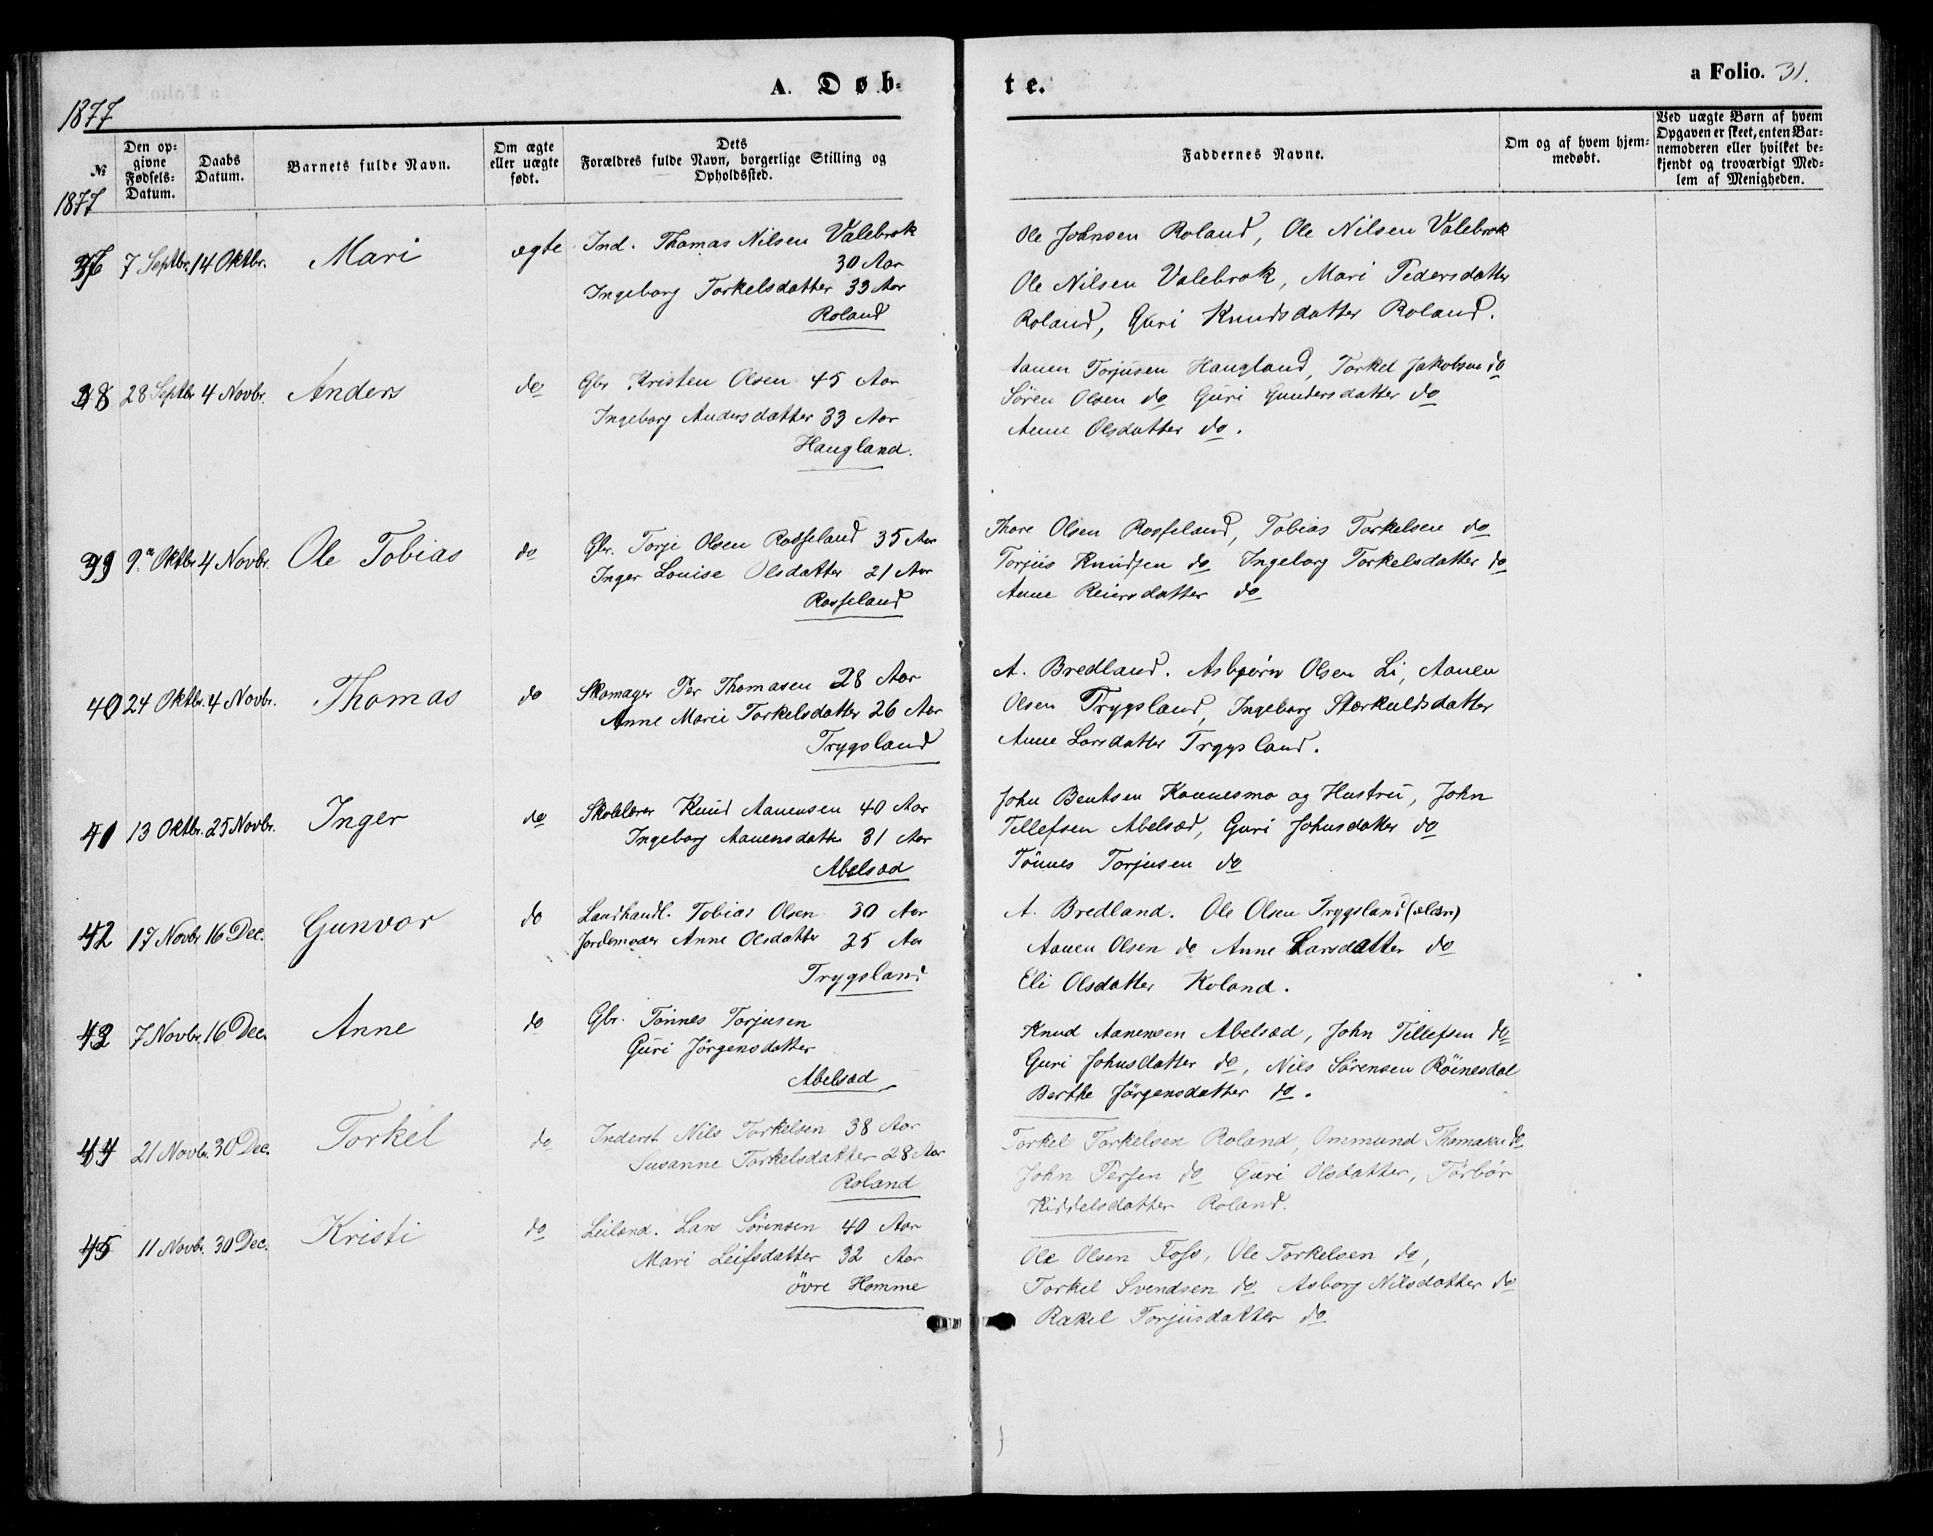 A. Døb-
te.
a Folio. 31.
1877
№
Den op-
givne
Fødsels-
Datum.
Daabs
Datum.
Barnets fulde Navn.
Om ægte
eller uægte
født.
Dets
Forældres fulde Navn, borgerlige Stilling og
Opholdssted.
Faddernes Navne.
Om og af hvem hjem-
medøbt.
Ved uægte Børn af hvem
Opgaven er skeet, enten Bar-
nemoderen eller hvilket be-
kjendt og troværdigt Med-
lem af Menigheden.
1877
37 7 Septbr. 14 Oktbr. Mari ægte Ind. Thomas Nilsen Valebrok
30 Aar
Ingeborg Torkelsdatter 33 Aar
Roland
Ole Johnsen Roland, Ole Nilsen Valebrok
Ole Nilsen Valebrok, Mari Pedersdatter
Roland, Guri Knudsdatter Roland.
38 28 Septbr. 4 Novbr. Anders do Gbr Kristen Olsen 45 Aar
Ingeborg Andersdatter 33 Aar
Haugland.
Aanen Torjusen Haugland, Torkel Jakobsen do
Sören Olsen do Guri Gundersdatter do
Anne Olsdatter do.
39 9 Oktbr. 4 Novbr. Ole Tobias do Gbr. Torje Olsen Rosseland 35 Aar
Inger Louise Olsdatter 21 Aar
Rosseland
Thore Olsen Rosseland, Tobias Torkelsen do
Torjus Knudsen do Ingeborg Torkelsdatter do
Anne Reiersdatter do
40 24 Oktbr. 4 Novbr. Thomas do Skomager Per Thomasen 28 Aar
Anne Marie Torkelsdatter 26 Aar
Trygsland
A. Bredland. Asbjörn Olsen Li, Aanen
Olsen Trygsland, Ingeborg Stærkuldsdatter
Anne Larsdatter Trygsland.
41 13 Oktbr. 25 Novbr. Inger do Skolelærer Knud Aanensen 40 Aar
Ingeborg Aanensdatter 31 Aar
Abelsæd
John Bentsen Kannesmo og Hustru, John
Tellefsen Abelsæd, Guri Johnsdatter do
Tönnes Torjusen do
42 17 Novbr. 16 Dec. Gunvor do Landhandl. Tobias Olsen 30 Aar
Jordemoder Anne Olsdatter 25 Aar
Trygsland
A. Bredland. Ole Olsen Trygsland (ældre)
Aanen Olsen do Anne Larsdatter do
Eli Olsdatter Roland.
43 7 Novbr. 16 Dec. Anne do Gbr. Tönnes Torjusen
Guri Jörgensdatter
Abelsæd
Knud Aanensen Abelsæd, John Tellefsen do
Guri Johnsdatter do, Nils Sörensen Röinesdal
Berthe Jörgensdatter do.
44 21 Novbr. 30 Dec. Torkel do Inderst Nils Torkelsen 38 Aar
Susanne Torkelsdatter 28 Aar
Roland
Torkel Torkelsen Roland, Ommund Thomasen do
John Persen do Guri Olsdatter, Törbör
Kiddelsdatter Roland.
45 11 Novbr. 30 Dec. Kristi do Leilænd. Lars Sörensen 40 Aar
Mari Leifsdatter 32 Aar
övre Homme
Ole Olsen Foss, Ole Torkelsen do,
Torkel Svendsen do Asborg Nilsdatter do
Rakel Torjusdatter do